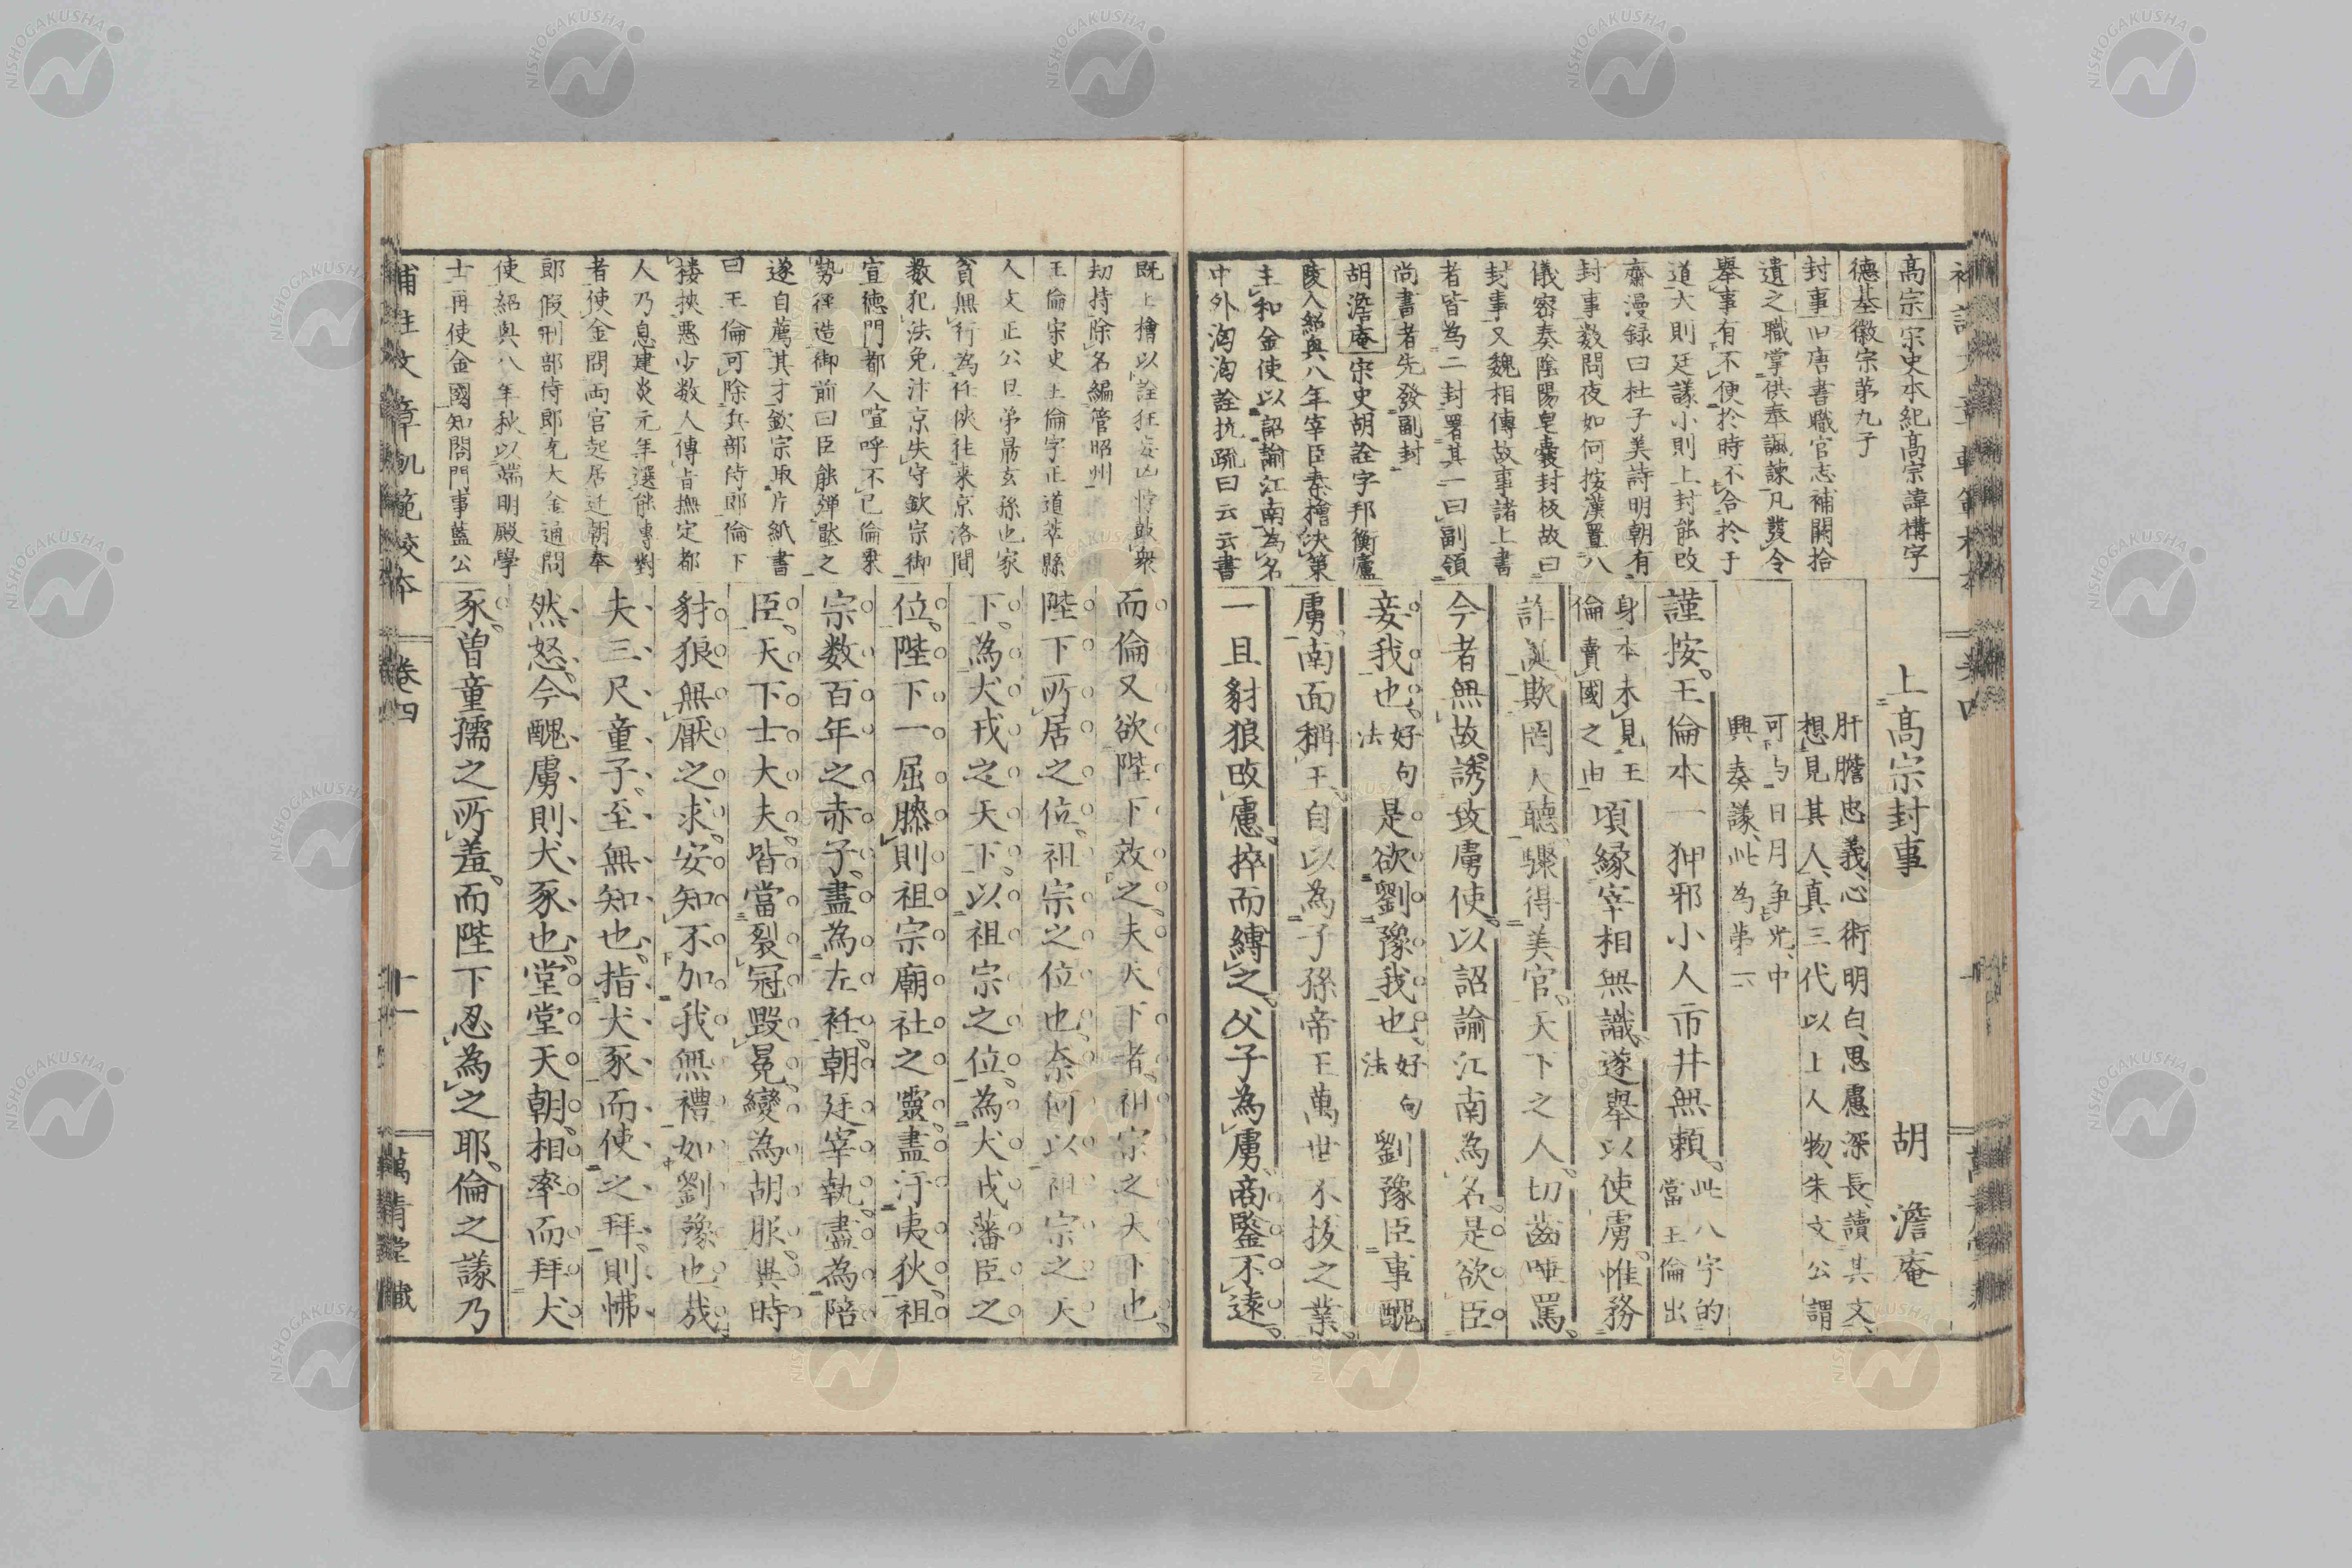 高宗宋史本紀高宗諱構字
德基徽宗第九子
封事旧唐書職官志補闕拾
遺之職掌供奉諷諫凡發令
舉事有不便於時不合於
道大則廷議小則上封能改
齋漫録曰杜子美詩明朝有
封事数問夜如何按漢置八
儀密奏陰陽皂囊封板故曰
封事又魏相傳故事諸上書
者皆為二封署其一曰副領
尚書者先發副封
胡澹庵宋史胡詮字邦衡廬
陵人紹興八年宰臣秦檜决策
主和金使以詔諭江南為名
中外洶洶詮抗疏曰云云書
上高宗封事
胡澹庵
肝膽忠義心術明白思慮深長讀其文
想見其人真三代以上人物朱文公謂
可与日月争光中
興奏議此為第一
謹按王倫本一狎邪小人市井無頼此八字的
當王倫出
身本末見王
倫賣國之由頃緣宰相無識遂舉以使虜惟務
詐誕欺罔天聽驟得美官天下之人切齒唾罵
今者無故誘致虜使以詔諭江南為名是欲臣
妾我也好句
法是欲劉豫我也好句
法劉豫臣事醜
虜南面稱王自以為子孫帝王萬世不拔之業
一旦豺狼改慮捽而縛之父子為虜商鑒不遠
既上檜以詮狂妄凶悖鼓衆
劫持除名編管昭州
王倫宋史王倫字正道莘縣
人文正公旦弟勗玄孫也家
貧無行為任俠往来京洛間
数犯法免汴京失守欽宗御
宣德門都人喧呼不已倫乘
勢徑造御前曰臣能彈壓之
遂自薦其才欽宗取片紙書
曰王倫可除兵部侍郎倫下
楼挾惡少数人傳旨撫定都
人乃息建炎元年選能專對
者使金問両宮起居迁朝奉
郎假刑部侍郎充大金通問
使紹興八年秋以端明殿學
士再使金國知閤門事藍公
而倫又欲陛下效之夫天下者祖宗之天下也
陛下所居之位祖宗之位也奈何以祖宗之天
下為犬戎之天下以祖宗之位為犬戎藩臣之
位陛下一屈膝則祖宗廟社之靈盡汙夷狄祖
宗数百年之赤子盡為左衽朝廷宰執盡為陪
臣天下士大夫皆當裂冠毀冕變為胡服異時
豺狼無厭之求安知不加我無禮如劉豫也哉
夫三尺童子至無知也指犬豕而使之拜則怫
然怒今醜虜則犬豕也堂堂天朝相率而拜犬
豕曽童孺之所羞而陛下忍為之耶倫之議乃
補註文章軌範校本 卷四 十一 萬青堂藏